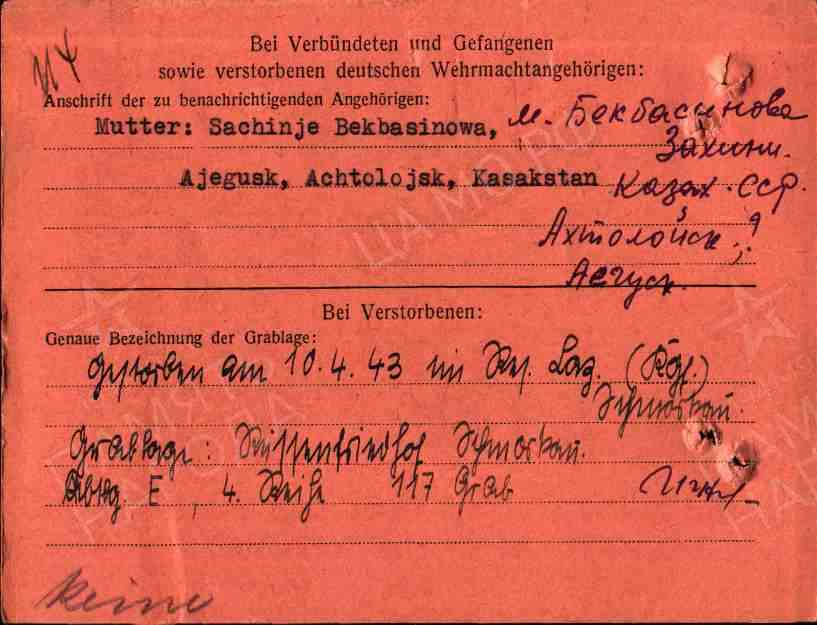 Bei Verbündeten und Gefangenen
sowie verstorbenen deutschen Wehrmachtangehörigen:
Anschrift der zu benachrichtigenden Angehörigen:
Mutter: Sachinje Bekbasinowa, м. Бекбасинова
Захини.
Ajegusk, Achtolojsk, Kasakstan Казах. ССР.
Ахтолойск ?
Аегуск.
Bei Verstorbenen:
Genaue Bezeichnung der Grablage:
Gestorben am 10.4.43 im Res. Laz. (Kgf.)
Schmorkau.
Grablage: Russenfriedhof Schmorkau.
Abtlg. E, 4. Reihe 117 Grab
keine
ЦАМО РФ
ПАМЯТЬ
НАРОДА